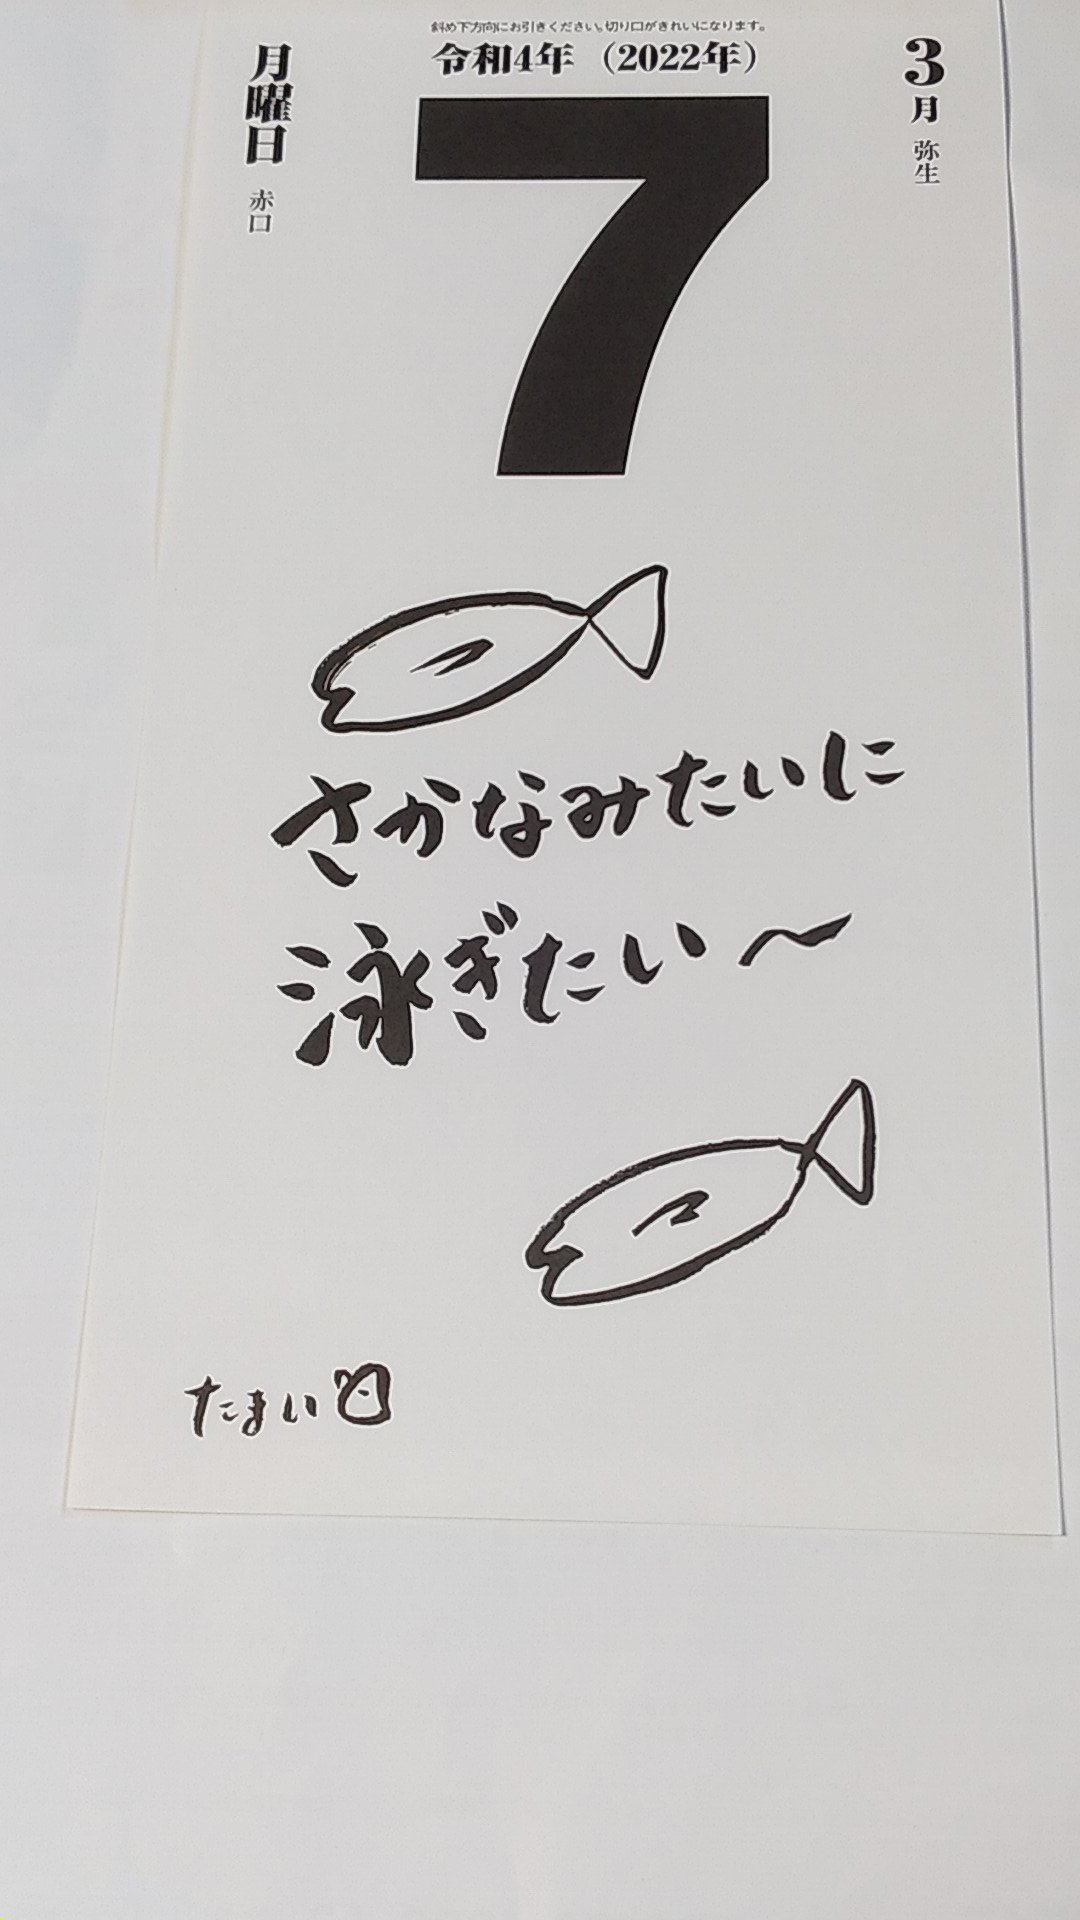 斜め下方向にお引きください。切り口がきれいになります。
令和4年（2022年）
3月 弥生
月曜日 赤口
7
さかなみたいに
泳ぎたい〜
たまい